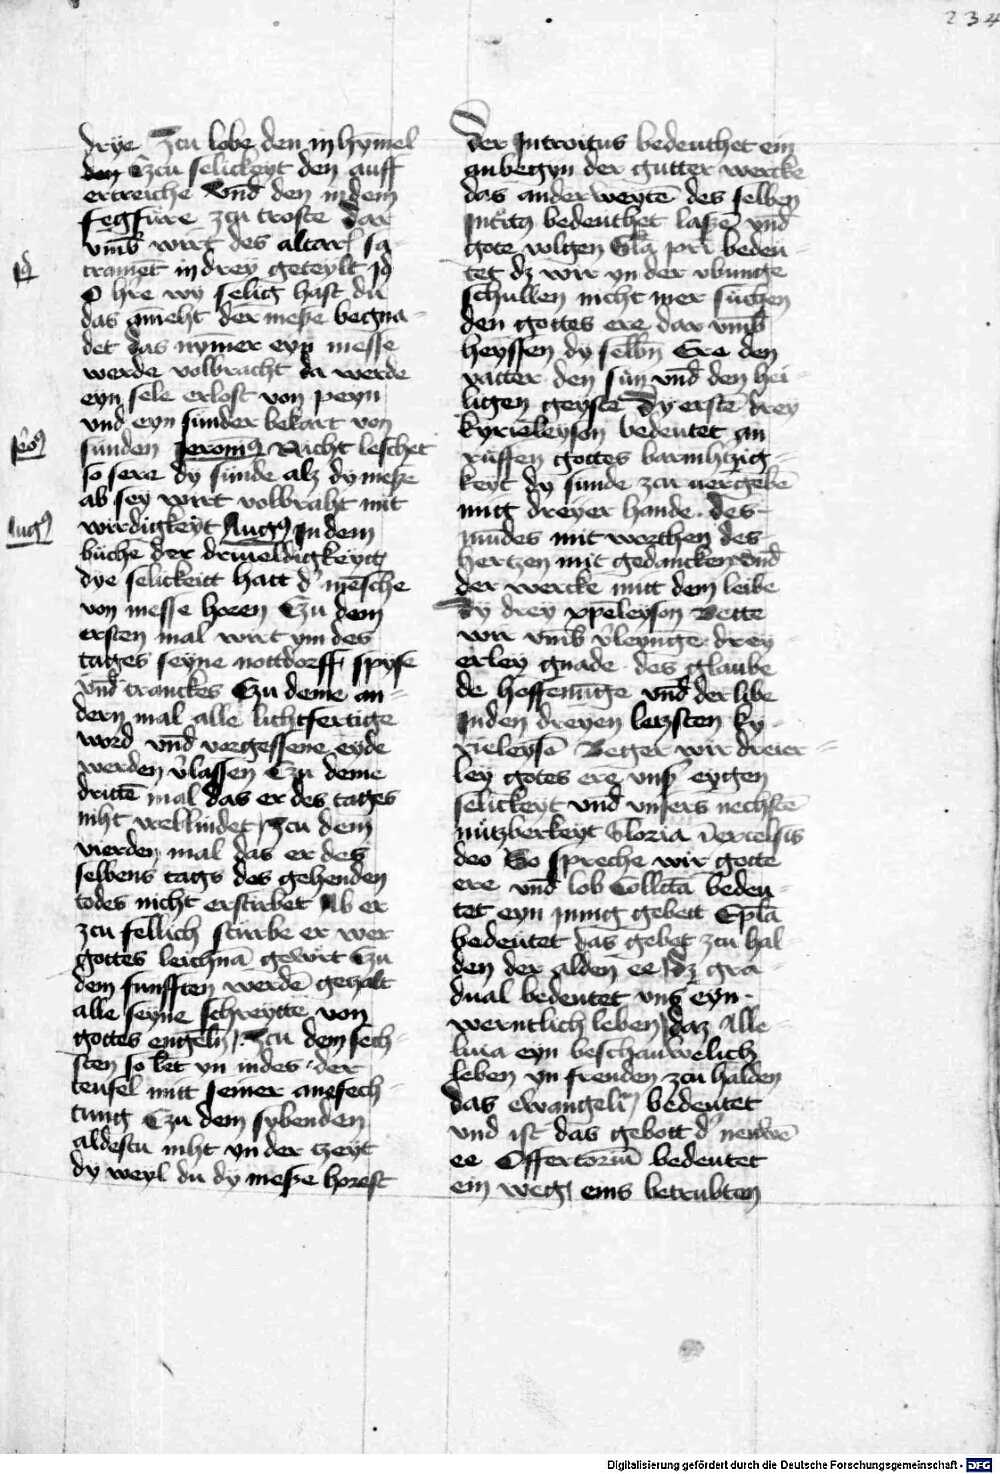 234
drÿe Zcu lobe den in hÿmel
den Czcu selickeyt den auff
ertreiche Vnd den in dem
fegfüre zcu troste Dar
vmb wirt des altarſ sa-
cramēt in drey geteylt Jd
O hr̄e wy selig hast du
das ameht der meße begna-
det das nymer eyn messe
werde volbracht da werde
eyn sele erlost von peyn
vnd eyn sunder bekart von
sunden Jeronimꝰ Nicht leschet
so sere dy sunde alz dy meße
ab sey wirt volbraht mit
wirdigkeÿt Augꝰ In dem
büche der driueldigkeytt
dye selickeitt hatt d' mēsche
von messe horen Czu dem
ersten mal wirt ym des
tages seyne nottdorfft spyse
vnd tranckes Czu deme an-
dern mal alle lichtfertige
word vnd vorgessene eyde
werden v'lassen Czu deme
drittē mal das er des tages
niht vreblindet Zcu dem
vierden mal das er des
selbens tags des gehenden
todes nicht erstirbet Ab er
zcu fellich stürbe er wer
gottes leichnā gewirt Czu
dem funfften werdē gezalt
alle seyne schreytte von
gottes engeln Zcu dem sech-
sten so let yn indes der
teufel mitt seiner anefech-
tung Czu dem sybenden
aldestu niht yn der tzeyt
dy weyl du dy meße horest
Jd
Jeoꝰ
Augꝰ
Der Introitus bedeuthet ein
anbegyn der gutter wercke
das ander weytē des selben
Intritꝰ bedeuthet laßē vnd
gote volgen Glā pr̄i bedeu-
tet dz wir yn der vbunge
schullen nicht mer suchen
den gottes ere dar vmb
heyssen dy selbn̄ Ere den
vatter den sun vnd den hei-
ligen geyste Dy erstē drey
kyrieleyson bedeutet an
ruffen gottes barmhtzig-
keyt dy sunde zcu uergebē
mitt dreyer hande des
mundes mit worthen des
hertzen mit gedancken vnd
der wercke mitt dem leibe
Dy drey xp̄eleyson Bette
wir vmb v'leyunge drey
erley gnade des glaube
de hoffenunge vnd der libe
In den dreyen letzsten ky-
rieleysō Beger wir dreier-
ley gotes ere vnß eygen
selickeyt vnd vnsers nechstē
nützberkeyt Gloria in excelsis
deo So spreche wir gotte
ere vnd lob Collctā bedeu-
tet eyn jnnig gebett Epl̄a
bedeutet das gebot zcu hal-
den der alden ee dz gra-
dual bedeutet vns eyn
werntlich leben daz Alle-
luia eyn beschauwelich
leben yn freuden zcu halden
das ewangeliū bedeutet
vnd ist das gebott d' neuwē
ee Offertoriū bedeutet
ein weg eins betrubten
Digitalisierung gefördert durch die Deutsche Forschungsgemeinschaft - DFG